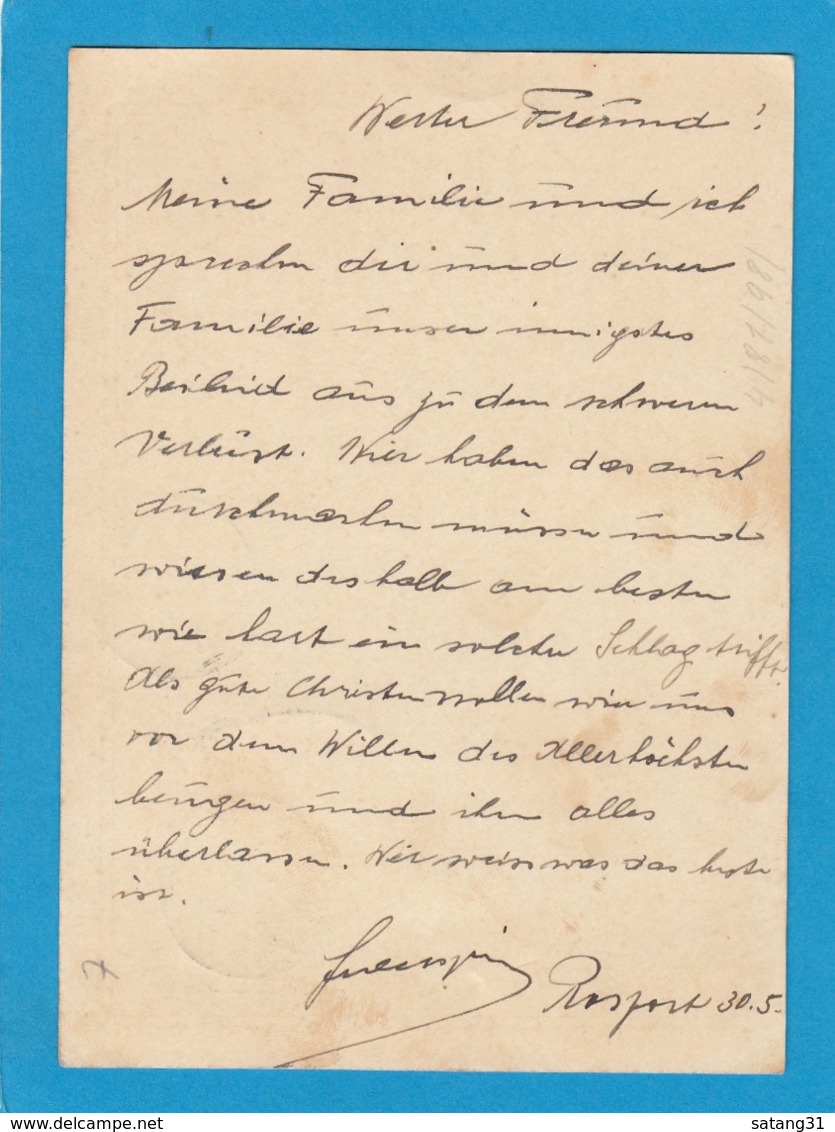 Werter Freund!
Meine Familie und ich
sprechen dir und deiner
Familie unser innigstes
Beileid aus zu dem schweren
Verlust. Wier haben das auch
durchmachen müssen und
wissen deshalb am besten
wie hart ein solcher Schlag trifft.
Als gute Christen wollen wier uns
vor dem Willen des Allerhöchsten
beugen und ihm alles
überlassen. Wer weiss was das beste
ist.
Rosport 30.5.
4/81/98/
7
satang31